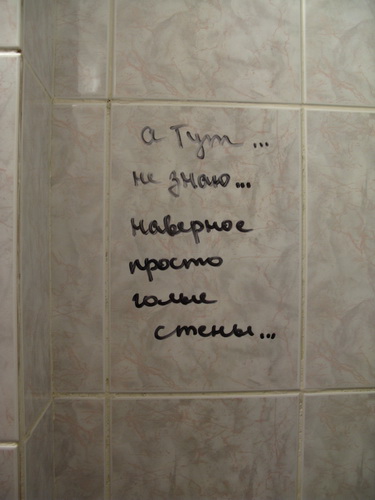 а тут...
не знаю...
наверное
просто
голые
стены...